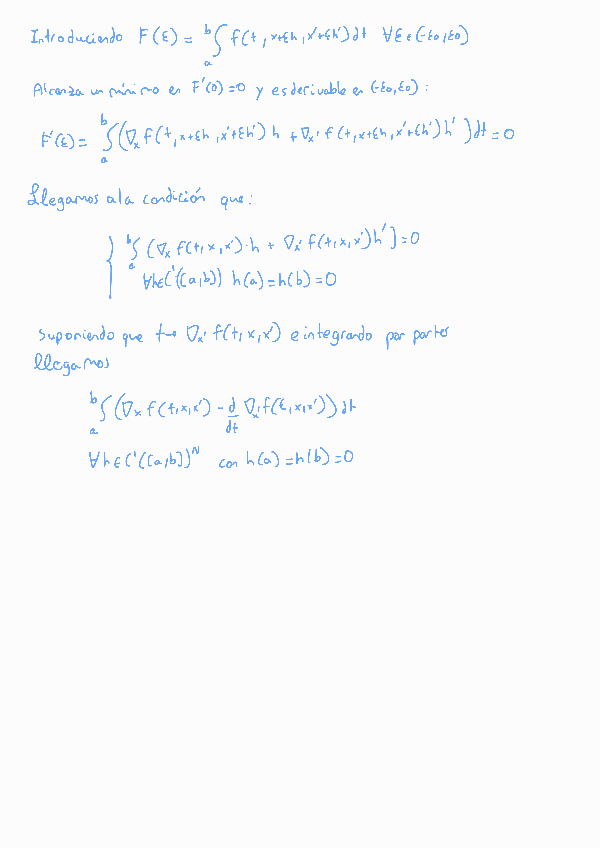 Introduciendo F(ε) = ∫_a^b f(t, x+εh, x'+εh')dt ∀ε∈(-ε0,ε0)
Alcanza un mínimo en F'(0)=0 y es derivable en (-ε0,ε0):
F'(ε) = ∫_a^b (∇_x f(t,x+εh,x'+εh') h + ∇_x' f(t,x+εh,x'+εh')h')dt = 0
Llegamos a la condición que:
{ ∫_a^b (∇_x f(t,x,x')·h + ∇_x' f(t,x,x')h'] = 0
∀h∈C'([a,b]) h(a)=h(b)=0
suponiendo que t→ ∇_x' f(t,x,x') e integrando por partes
llegamos
∫_a^b (∇_x f(t,x,x') - d/dt ∇_x' f(t,x,x'))dt
∀h∈C'([a,b])^N con h(a)=h(b)=0